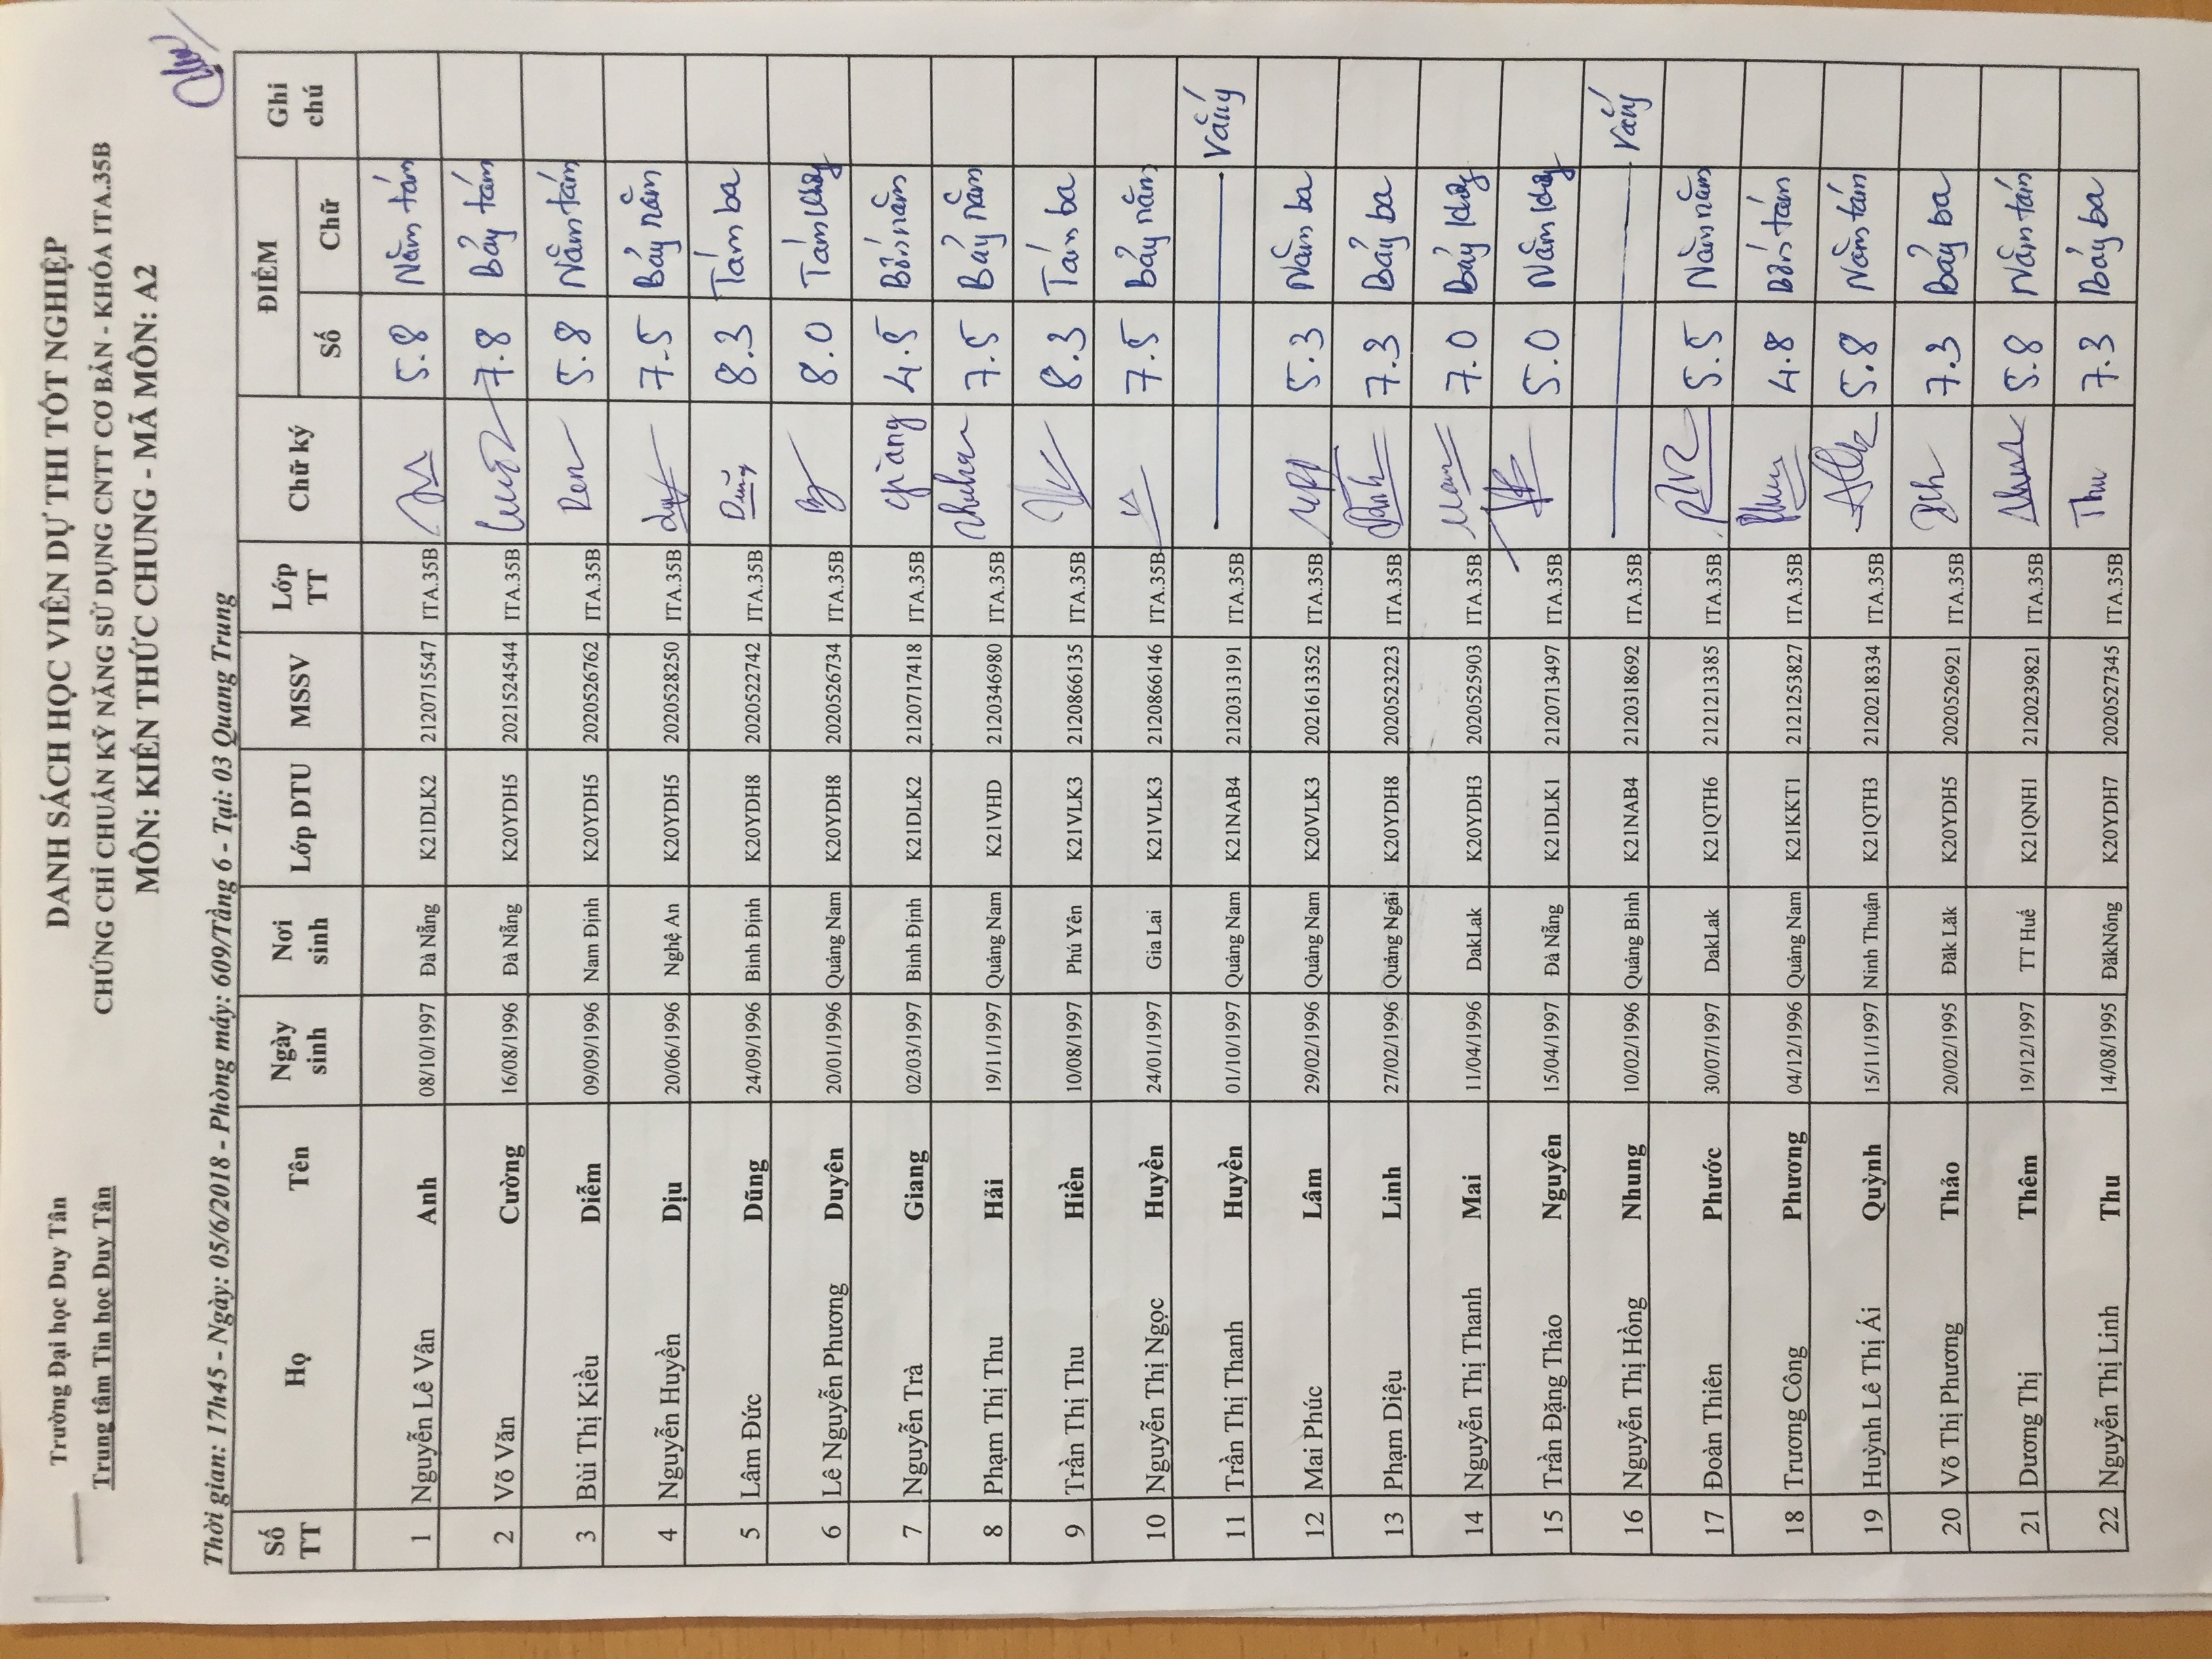 Trường Đại học Duy Tân
Trung tâm Tin học Duy Tân
DANH SÁCH HỌC VIÊN DỰ THI TỐT NGHIỆP
CHỨNG CHỈ CHUẨN KỸ NĂNG SỬ DỤNG CNTT CƠ BẢN - KHÓA ITA.35B
MÔN: KIẾN THỨC CHUNG - MÃ MÔN: A2
Thời gian: 17h45 - Ngày: 05/6/2018 - Phòng máy: 609/Tầng 6 - Tại: 03 Quang Trung
Số TT Họ Tên Ngày sinh Nơi sinh Lớp DTU MSSV Lớp TT Chữ ký ĐIỂM Ghi chú
Số Chữ
1 Nguyễn Lê Vân Anh 08/10/1997 Đà Nẵng K21DLK2 2120715547 ITA.35B 5.8 Năm tám
2 Võ Văn Cường 16/08/1996 Đà Nẵng K20YDH5 2021524544 ITA.35B 7.8 Bảy tám
3 Bùi Thị Kiều Diễm 09/09/1996 Nam Định K20YDH5 2020526762 ITA.35B 5.8 Năm tám
4 Nguyễn Huyền Dịu 20/06/1996 Nghệ An K20YDH5 2020528250 ITA.35B 7.5 Bảy năm
5 Lâm Đức Dũng 24/09/1996 Bình Định K20YDH8 2020522742 ITA.35B Dũng 8.3 Tám ba
6 Lê Nguyễn Phương Duyên 20/01/1996 Quảng Nam K20YDH8 2020526734 ITA.35B 8.0 Tám không
7 Nguyễn Trà Giang 02/03/1997 Bình Định K21DLK2 2120717418 ITA.35B Giang 4.5 Bốn năm
8 Phạm Thị Thu Hải 19/11/1997 Quảng Nam K21VHD 2120346980 ITA.35B 7.5 Bảy năm
9 Trần Thị Thu Hiền 10/08/1997 Phú Yên K21VLK3 2120866135 ITA.35B 8.3 Tám ba
10 Nguyễn Thị Ngọc Huyền 24/01/1997 Gia Lai K21VLK3 2120866146 ITA.35B 7.5 Bảy năm
11 Trần Thị Thanh Huyền 01/10/1997 Quảng Nam K21NAB4 2120313191 ITA.35B Vắng
12 Mai Phúc Lâm 29/02/1996 Quảng Nam K20VLK3 2021613352 ITA.35B 5.3 Năm ba
13 Phạm Diệu Linh 27/02/1996 Quảng Ngãi K20YDH8 2020523223 ITA.35B 7.3 Bảy ba
14 Nguyễn Thị Thanh Mai 11/04/1996 DakLak K20YDH3 2020525903 ITA.35B 7.0 Bảy không
15 Trần Đặng Thảo Nguyên 15/04/1997 Đà Nẵng K21DLK1 2120713497 ITA.35B 5.0 Năm không
16 Nguyễn Thị Hồng Nhung 10/02/1996 Quảng Bình K21NAB4 2120318692 ITA.35B Vắng
17 Đoàn Thiên Phước 30/07/1997 DakLak K21QTH6 2121213385 ITA.35B 5.5 Năm năm
18 Trương Công Phương 04/12/1996 Quảng Nam K21KKT1 2121253827 ITA.35B 4.8 Bốn tám
19 Huỳnh Lê Thị Ái Quỳnh 15/11/1997 Ninh Thuận K21QTH3 2120218334 ITA.35B 5.8 Năm tám
20 Võ Thị Phương Thảo 20/02/1995 Đăk Lăk K20YDH5 2020526921 ITA.35B 7.3 Bảy ba
21 Dương Thị Thêm 19/12/1997 TT Huế K21QNH1 2120239821 ITA.35B 5.8 Năm tám
22 Nguyễn Thị Linh Thu 14/08/1995 ĐăkNông K20YDH7 2020527345 ITA.35B Thu 7.3 Bảy ba